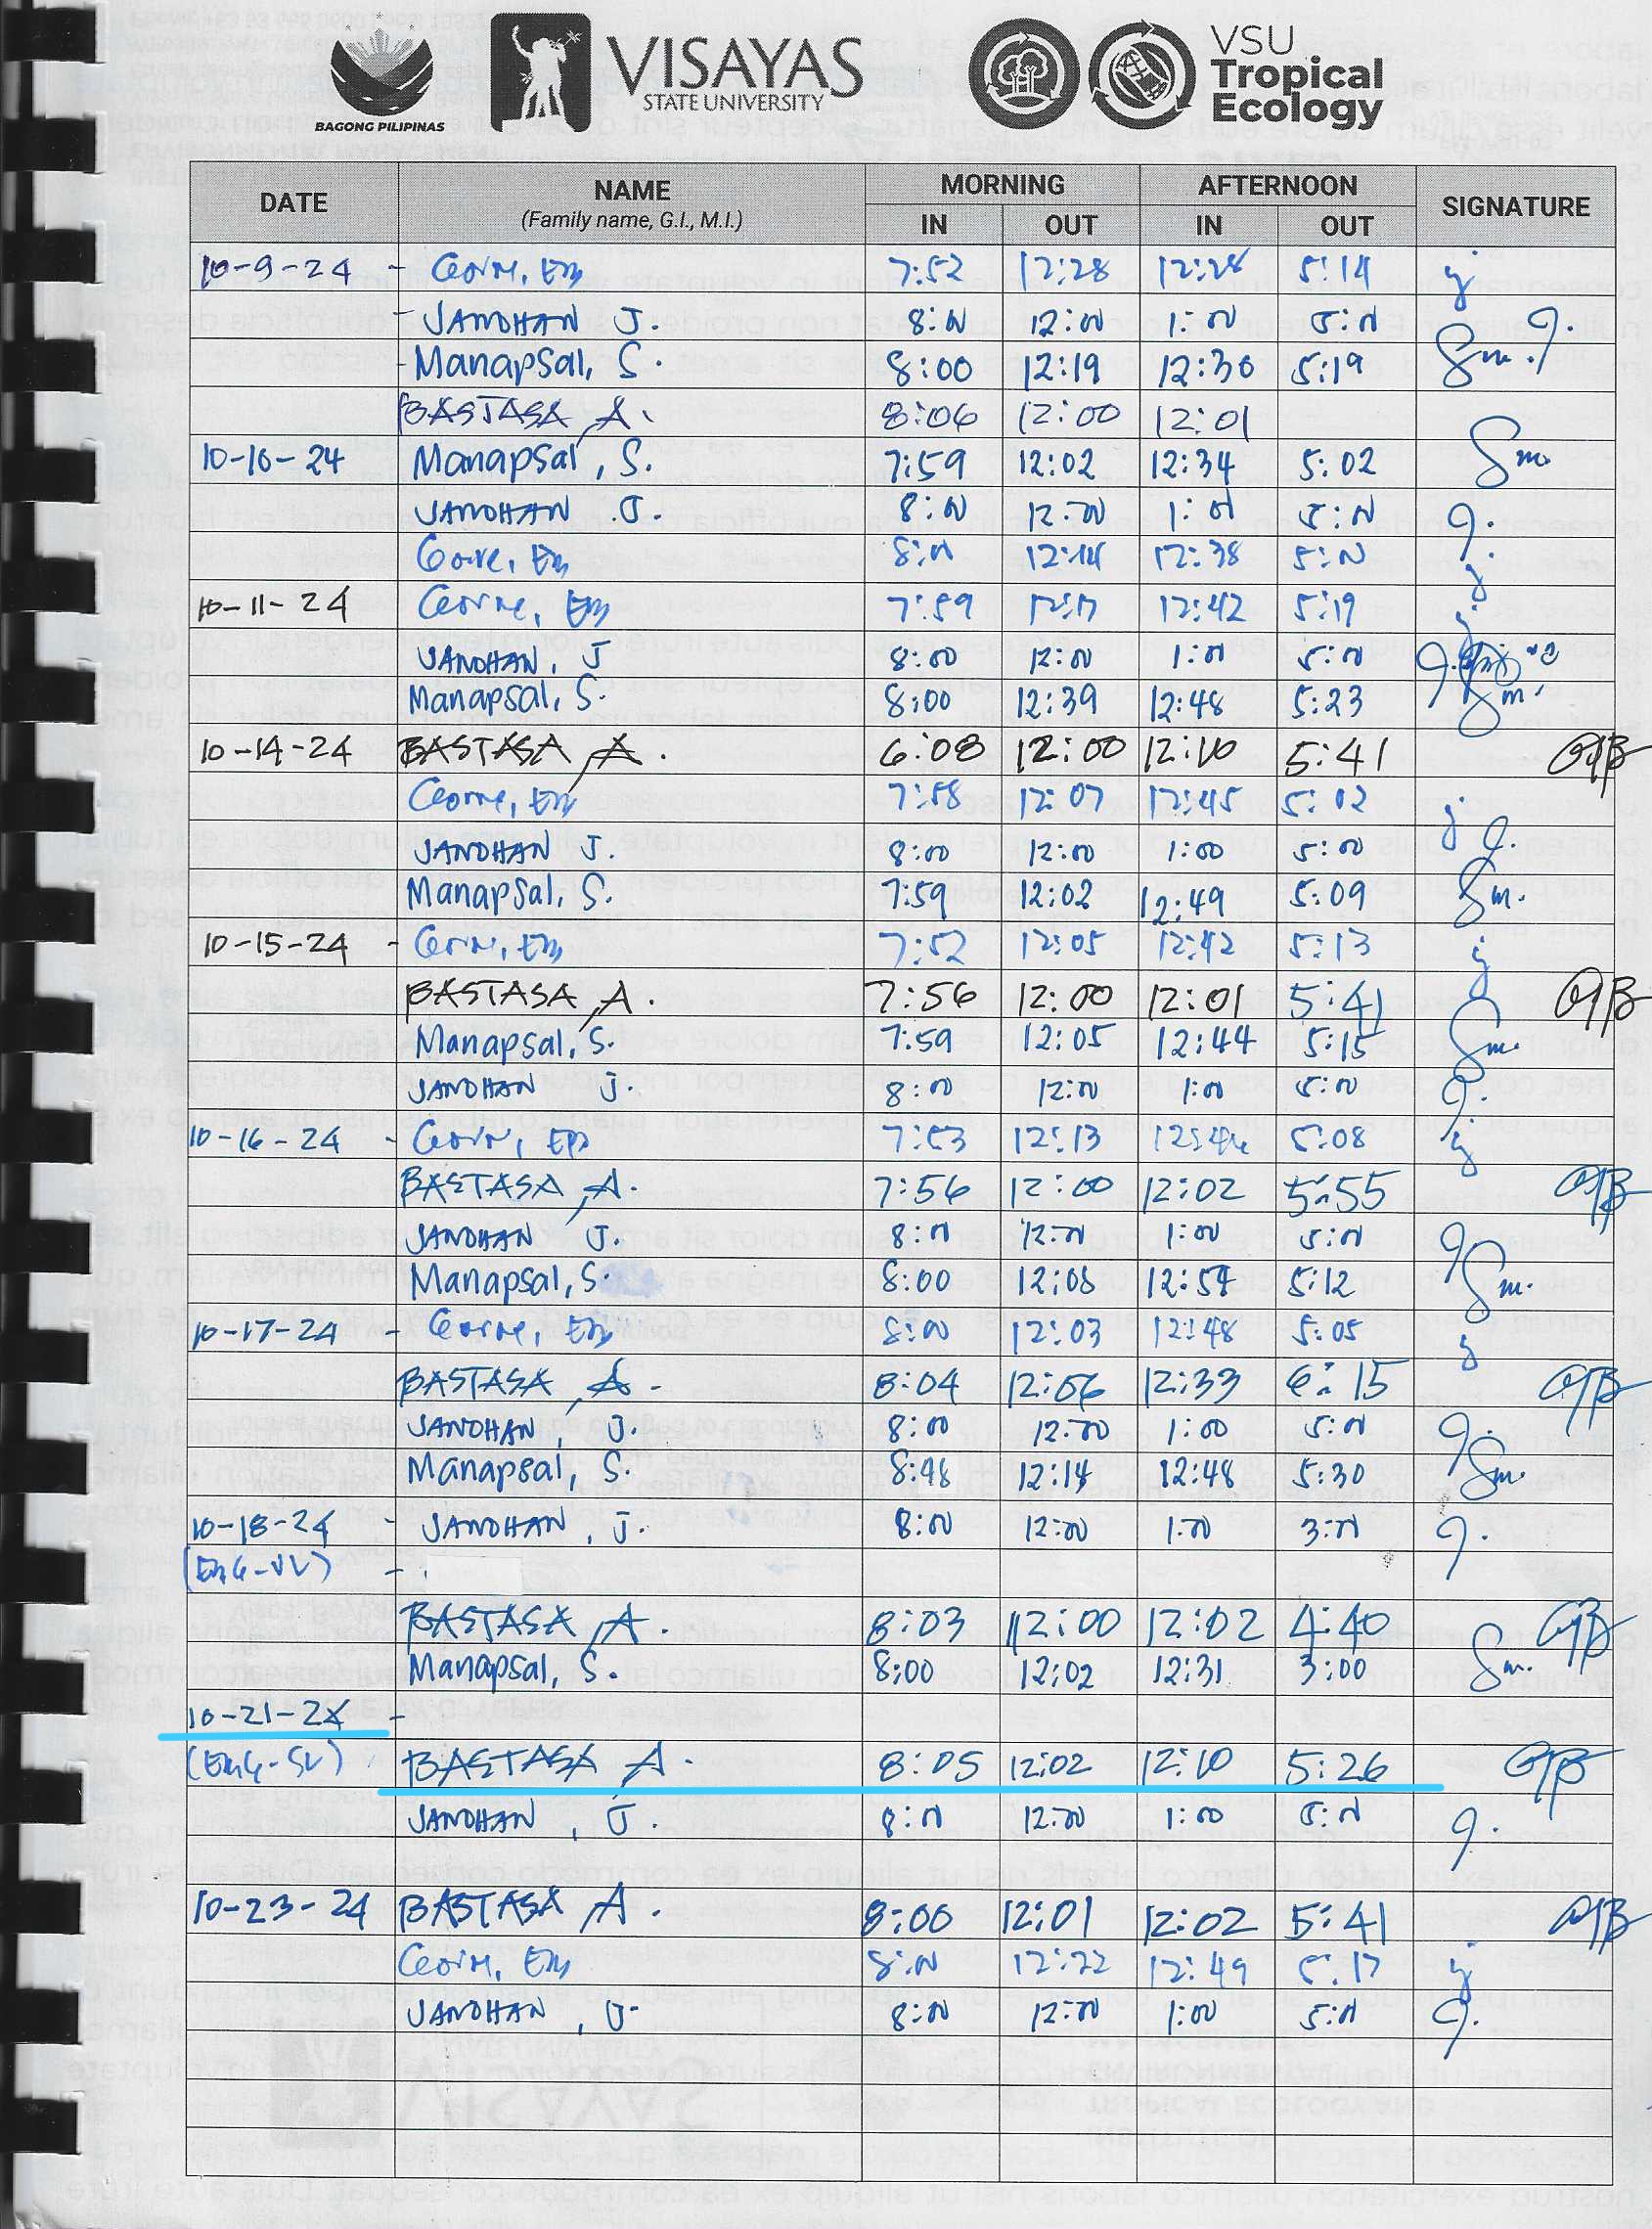 BAGONG PILIPINAS
VISAYAS
STATE UNIVERSITY
VSU
Tropical
Ecology
DATE NAME (Family name, G.I., M.I.) MORNING IN OUT AFTERNOON IN OUT SIGNATURE
10-9-24 - 7:52 12:28 12:28 5:14
- JANDHAN J. 8:00 12:00 1:00 5:00
- Manapsal, S. 8:00 12:19 12:30 5:19 Sm.
BASTASA, A. 8:06 12:00 12:01
10-10-24 Manapsal, S. 7:59 12:02 12:34 5:02 Sm.
JANDHAN J. 8:00 12:00 1:00 5:00
8:00 12:14 12:38 5:00
10-11-24 7:59 12:42 5:19
JANDHAN, J 8:00 12:00 1:00 5:00
Manapsal, S. 8:00 12:39 12:48 5:23 Sm.
10-14-24 BASTASA, A. 6:08 12:00 12:10 5:41
7:58 12:07 12:45 5:02
JANDHAN J. 8:00 12:00 1:00 5:00
Manapsal, S. 7:59 12:02 12:49 5:09 Sm.
10-15-24 - 7:52 12:05 12:42 5:13
BASTASA, A. 7:56 12:00 12:01 5:41
Manapsal, S. 7:59 12:05 12:44 5:15 Sm.
JANDHAN J. 8:00 12:00 1:00 5:00
10-16-24 - 7:53 12:13 5:08
BASTASA, A. 7:56 12:00 12:02 5:55
JANDHAN J. 8:00 12:00 1:00 5:00
Manapsal, S. 8:00 12:08 12:54 5:12 Sm.
10-17-24 - 8:00 12:03 12:48 5:05
BASTASA, A. 8:04 12:06 12:33 6:15
JANDHAN, J. 8:00 12:00 1:00 5:00
Manapsal, S. 8:48 12:14 12:48 5:30 Sm.
10-18-24 - JANDHAN, J. 8:00 12:00 1:00 3:00
-
BASTASA, A. 8:03 12:00 12:02 4:40
Manapsal, S. 8:00 12:02 12:31 3:00 Sm.
10-21-24 -
BASTASA, A. 8:05 12:02 12:10 5:26
JANDHAN, J. 8:00 12:00 1:00 5:00
10-23-24 BASTASA, A. 8:00 12:01 12:02 5:41
8:00 12:22 12:49 5:17
JANDHAN, J. 8:00 12:00 1:00 5:00